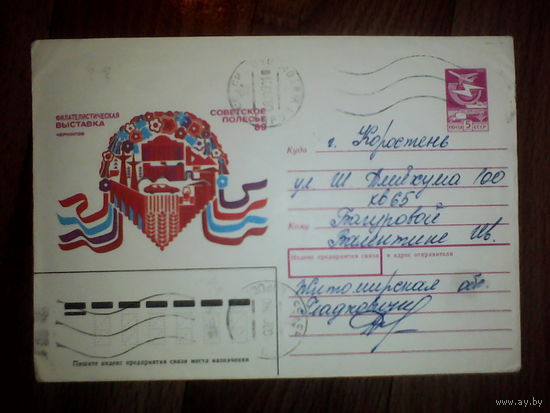 ФИЛАТЕЛИСТИЧЕСКАЯ
ВЫСТАВКА
ЧЕРНИГОВ
СОВЕТСКОЕ
ПОЛЕСЬЕ
89
ПОЧТА СССР 5
Куда г. Коростень
ул Ш Алейхума 100
кв 65
Кому
Валентине Ив.
Индекс предприятия связи и адрес отправителя
Житомирская обл.
Гладковичи
Пишите индекс предприятия связи места назначения
www.ay.by